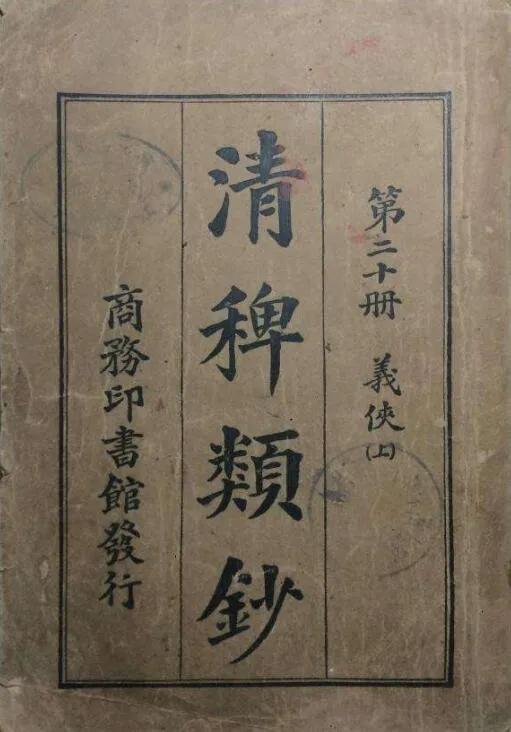 第二十册 義俠(上)
清稗類鈔
商務印書館發行